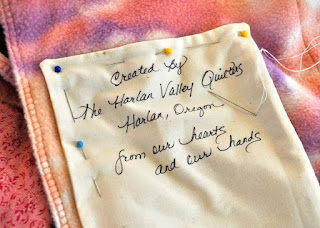 Created by
the Harlan Valley Quilters
Harlan, Oregon
from our hearts
and our hands